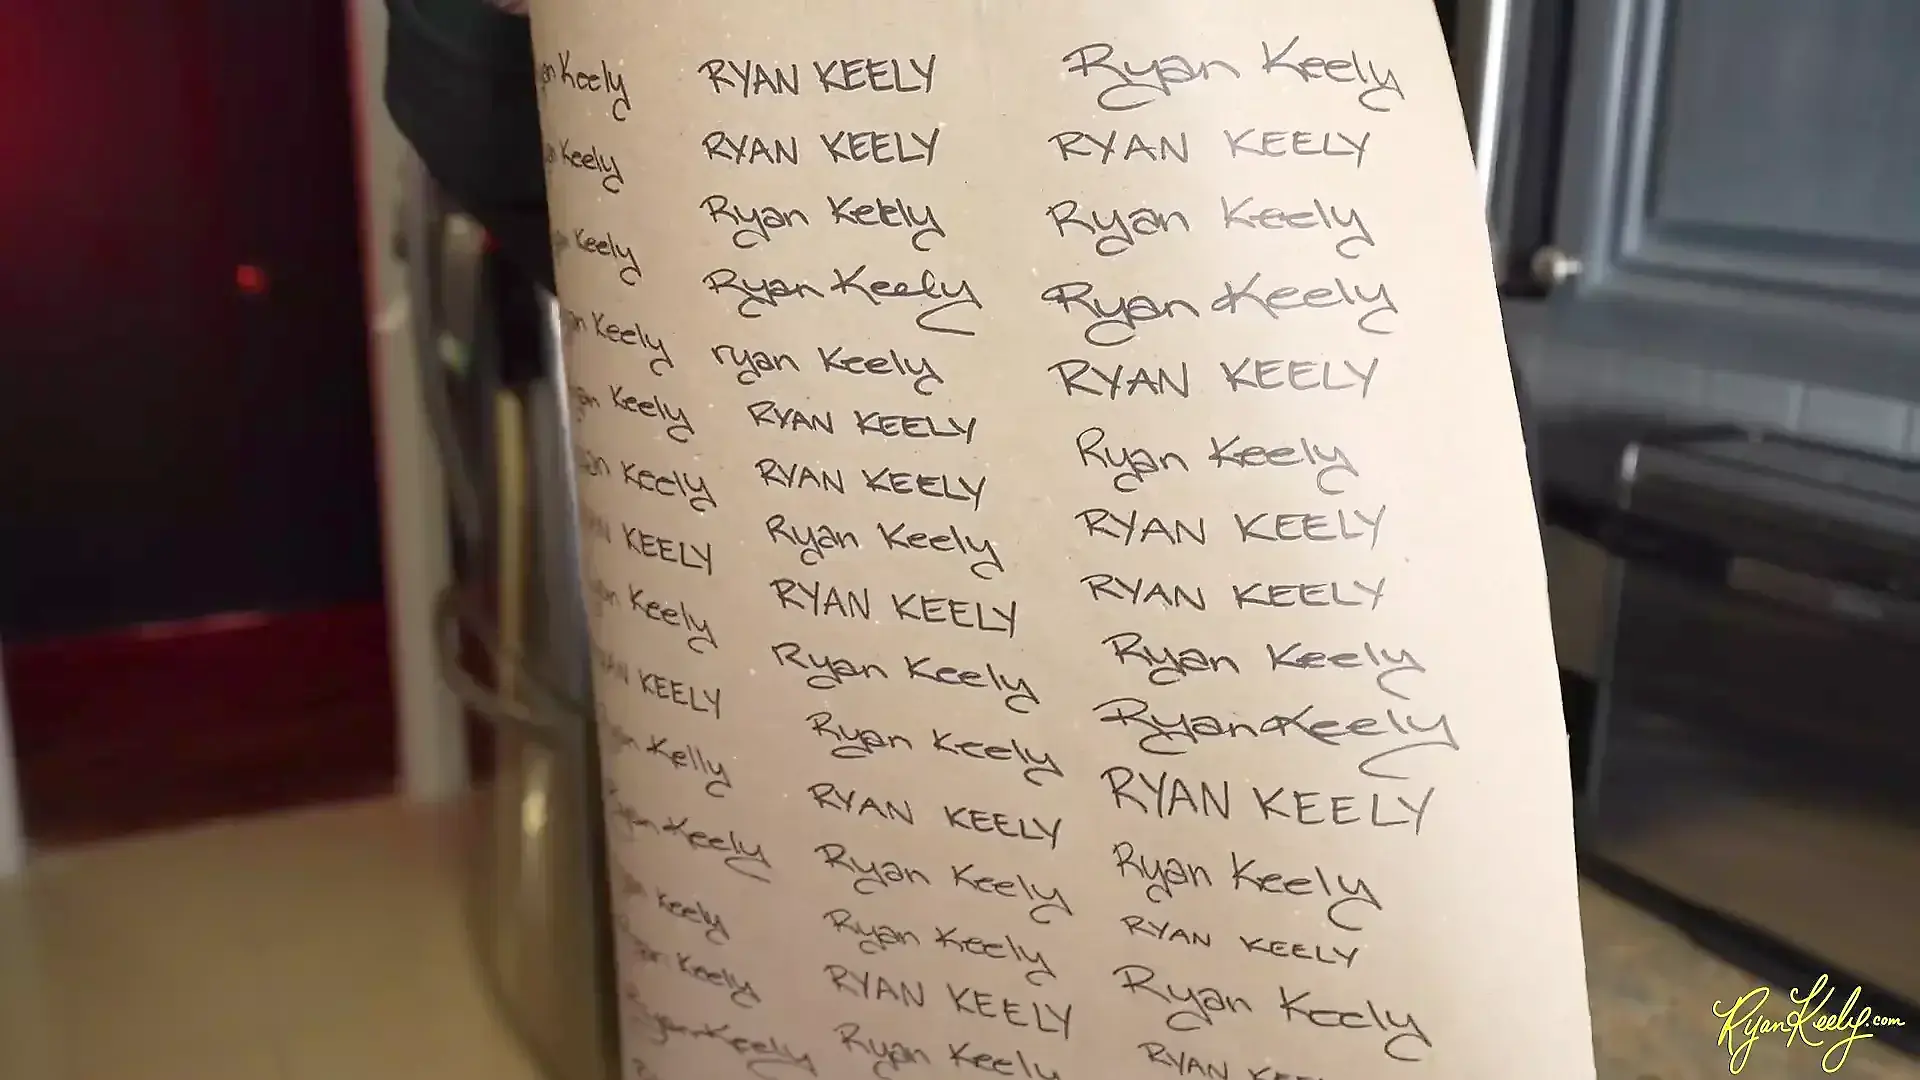 Keely RYAN KEELY Ryan Keely
Keely RYAN KEELY RYAN KEELY
Keely Ryan Keely Ryan Keely
Keely Ryan Keely Ryan Keely
Keely ryan Keely RYAN KEELY
Keely RYAN KEELY Ryan Keely
KEELY RYAN KEELY RYAN KEELY
Keely Ryan Keely RYAN KEELY
KEELY RYAN KEELY Ryan Keely
Kelly Ryan Keely Ryan Keely
Keely Ryan Keely RYAN KEELY
Keely RYAN KEELY Ryan Keely
Keely Ryan Keely RYAN KEELY
Ryan Keely Ryan Keely Ryan Keely
RYAN KEELY RYAN
Ryan Keely
RyanKeely.com